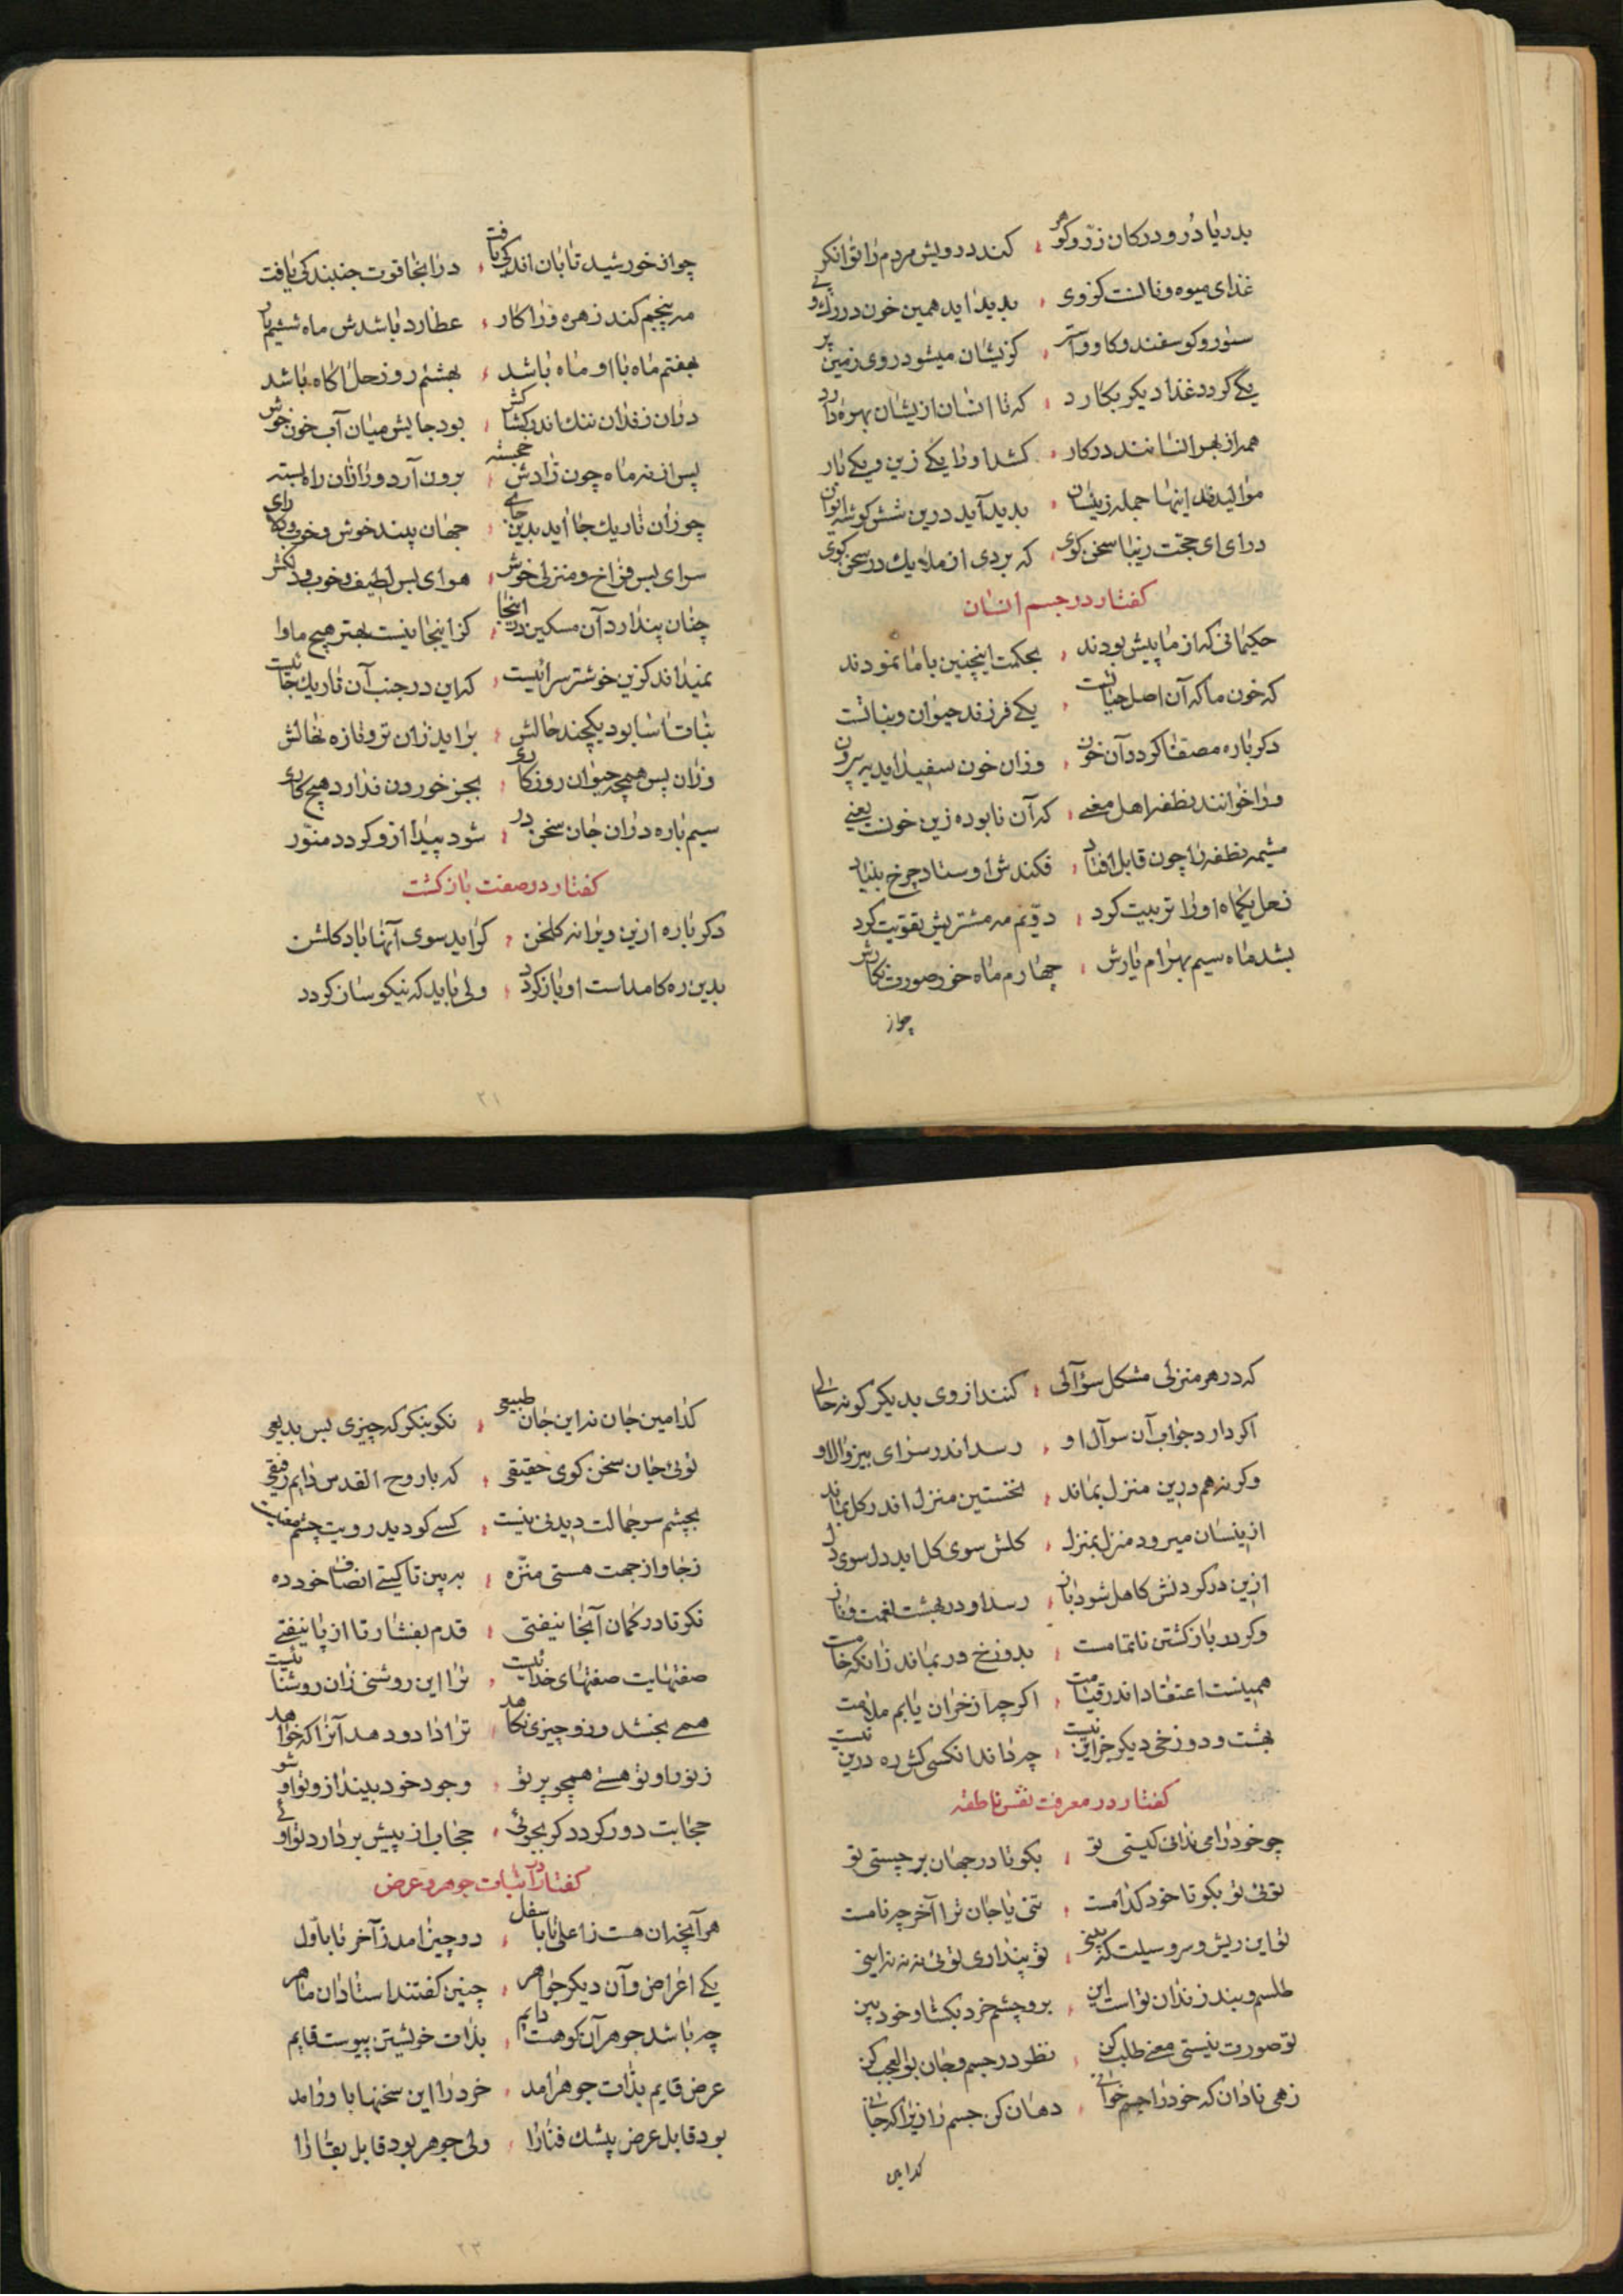 بدریا دُر و در کان زرّ و گوهر ؛ کند درویش مردم را توانگر
غذای میوه و نانست کز وی ؛ بدید اید همین خون در رک و پی
ستور و کوسفند و کاو و استر ؛ کزیشان میشود روی زمین پر
یکی کردد غذا دیکر بکار د ؛ که تا انسان ازیشان بهره دارد
همه از بهر انسانند در کار ؛ کشد او را یکی زین و یکی بار
موالیدند اینها جمله زیشان ؛ بدید آید درین شش کوشه ایوان
در ای ای حجّت زیبا سخن کوی ؛ که بردی از ملایک در سخن کوی
کفتار در جسم انسان
حکیمانی که از ما پیش بودند ؛ بحکمت اینچنین با ما نمودند
که خون ما که آن اصل حیاتست ؛ یکی فرزند حیوان و نباتست
دکر باره مصفّا کردد آن خون ؛ وزان خون سفید اید به بیرون
ورا خوانند نطفه اهل معنی ؛ که آن نابوده زین خونست یعنی
مشیمه نطفه را چون قابل افتاد ؛ فکندش اوستاد چرخ بنیاد
زحل یکماه او را تربیت کرد ؛ دویّم مه مشتریش تقویت کرد
بشد ماه سیم بهرام یارش ؛ چهارم ماه خور صورت نکارش
چواز
چو از خورشید تابان اندکی یافت ؛ در اینجا قوت جنبندکی یافت
مه پنجم کند زهره ورا کار ؛ عطارد باشدش ماه ششم یار
بهفتم ماه با او ماه باشد ؛ بهشتم رو زحل اکاه باشد
دران زندان تنک اندر کشاکش ؛ بود جایش میان آب خون خوش
پس از نه ماه چون زادش خجسته ؛ برون آرد ورا زان راه بسته
چو زان تاریک جا اید بدین جای ؛ جهان بیند خوش و خوب و دکر رای
سرای بس فراخ و منزلی خوش ؛ هوای بس لطیف و خوب و دلکش
چنان پندارد آن مسکین در اینجا ؛ کز اینجا نیست بهتر هیچ ماوا
نمیداند کزین خوشتر سرائیست ؛ که این در جنب آن تاریک جائیست
نبات اسا بود یکچند حالش ؛ براید زان تر و تازه نهالش
وزان پس همچو حیوان روزکاری ؛ بجز خوردن ندارد هیچ کاری
سیم باره دران جان سخن در ؛ شود پیدا ازو کردد منوّر
کفتار در صفت بازکشت
دکر باره ازین ویرانه کلخن ؛ کراید سوی آنها باد کلشن
بدین ره کامداست او باز کردد ؛ ولی باید که نیکو ساز کردد
۲۱
که در هر منزلی مشکل سؤآلی ؛ کنند از وی بدیکر کونه حالی
اکر دارد جواب آن سوآل او ؛ رسد اندر سرای بیزوال او
وکر نه هم درین منزل بماند ؛ نخستین منزل اندر کل بماند
ازینسان میرود منزل بمنزل ؛ کلش سوی کل اید دل سوی دل
ازین در کردنش کامل شود باز ؛ رسد او در بهشت نعمت و ناز
وکر در بازکشتن ناتمامست ؛ بدوزخ در بماند زانکه خامست
همینست اعتقاد اندر قیامت ؛ اکر چه از خران یابم ملامت
بهشت و دوزخی دیکر جز این نیست ؛ چه داند انکسی کش ره درین نیست
کفتار در معرفت نفس ناطقه
چو خود را می ندانی کیستی تو ؛ بکو تا در جهان بر چیستی تو
توئی تو بکو تا خود کدامست ؛ تنی یا جان ترا آخر چه نامست
تو این ریش و سر و سبلت که بینی ؛ تو پنداری توئی نه نه نه اینی
طلسم و بند زندان تو است این ؛ برو چشم خرد بکشا و خود بین
تو صورت نیستی معنی طلب کن ؛ نظر در جسم و جان بوالعجب کن
زهی نادان که خود را جسم خوانی ؛ دهان کن جسم را زیرا که جانی
کدامین
کدامین جان نه این جان طبیعی ؛ نکو بنکر که چیزی بس بدیعی
توئی جان سخن کوی حقیقی ؛ که با روح القدس دایم رفیقی
بچشم سر جمالت دیدنی نیست ؛ کسی کو دید رویت چشم معنیست
زجا و از جهت هستی منزّه ؛ به بین تا کیستی انصاف خود ده
نکر تا در کمان آنجا نیفتی ؛ قدم بفشار تا از پا نیفتی
صفتهایت صفتهای خدائیست ؛ ترا این روشنی زان روشنائیست
همی بخشد و زو چیزی نکاهد ؛ ترا داد و دهد آنرا که خواهد
ز نور او تو هستی همچو پرتو ؛ وجود خود بینداز و تو او شو
حجابت دور کردد کر بجوئی ؛ حجاب از پیش بردارد تو اوئی
کفتار در اثبات جوهر و عرض
هر آنچه ان هست ز اعلی تا باسفل ؛ دو چیز امد ز آخر تا باوّل
یکی اغراض و آن دیکر جواهر ؛ چنین کفتند استادان ماهر
چه باشد جوهر آن کو هست دایم ؛ بذات خویشتن پیوست قایم
عرض قایم بذات جوهر امد ؛ خرد را این سخنها باور امد
بود قابل عرض بیشک فنا را ؛ ولی جوهر بود قابل بقا را
۲۳